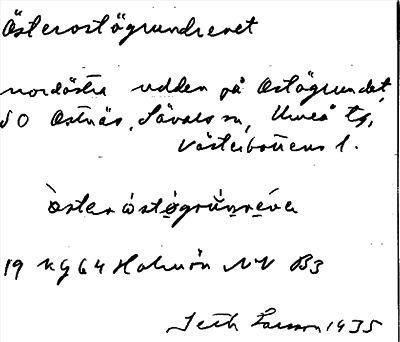 Österostögrundrevet
nordöstra udden på Ostögrundet
SO Ostnäs, Sävars sn, Umeå tg,
Västerbottens l.
òsteròstǫgrùnrevεː
19 Kg 64 Holmön NV B3
Seth Larsson 1935